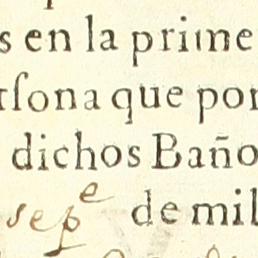 s en la prime
rſona que por
dichos Baño
de mil